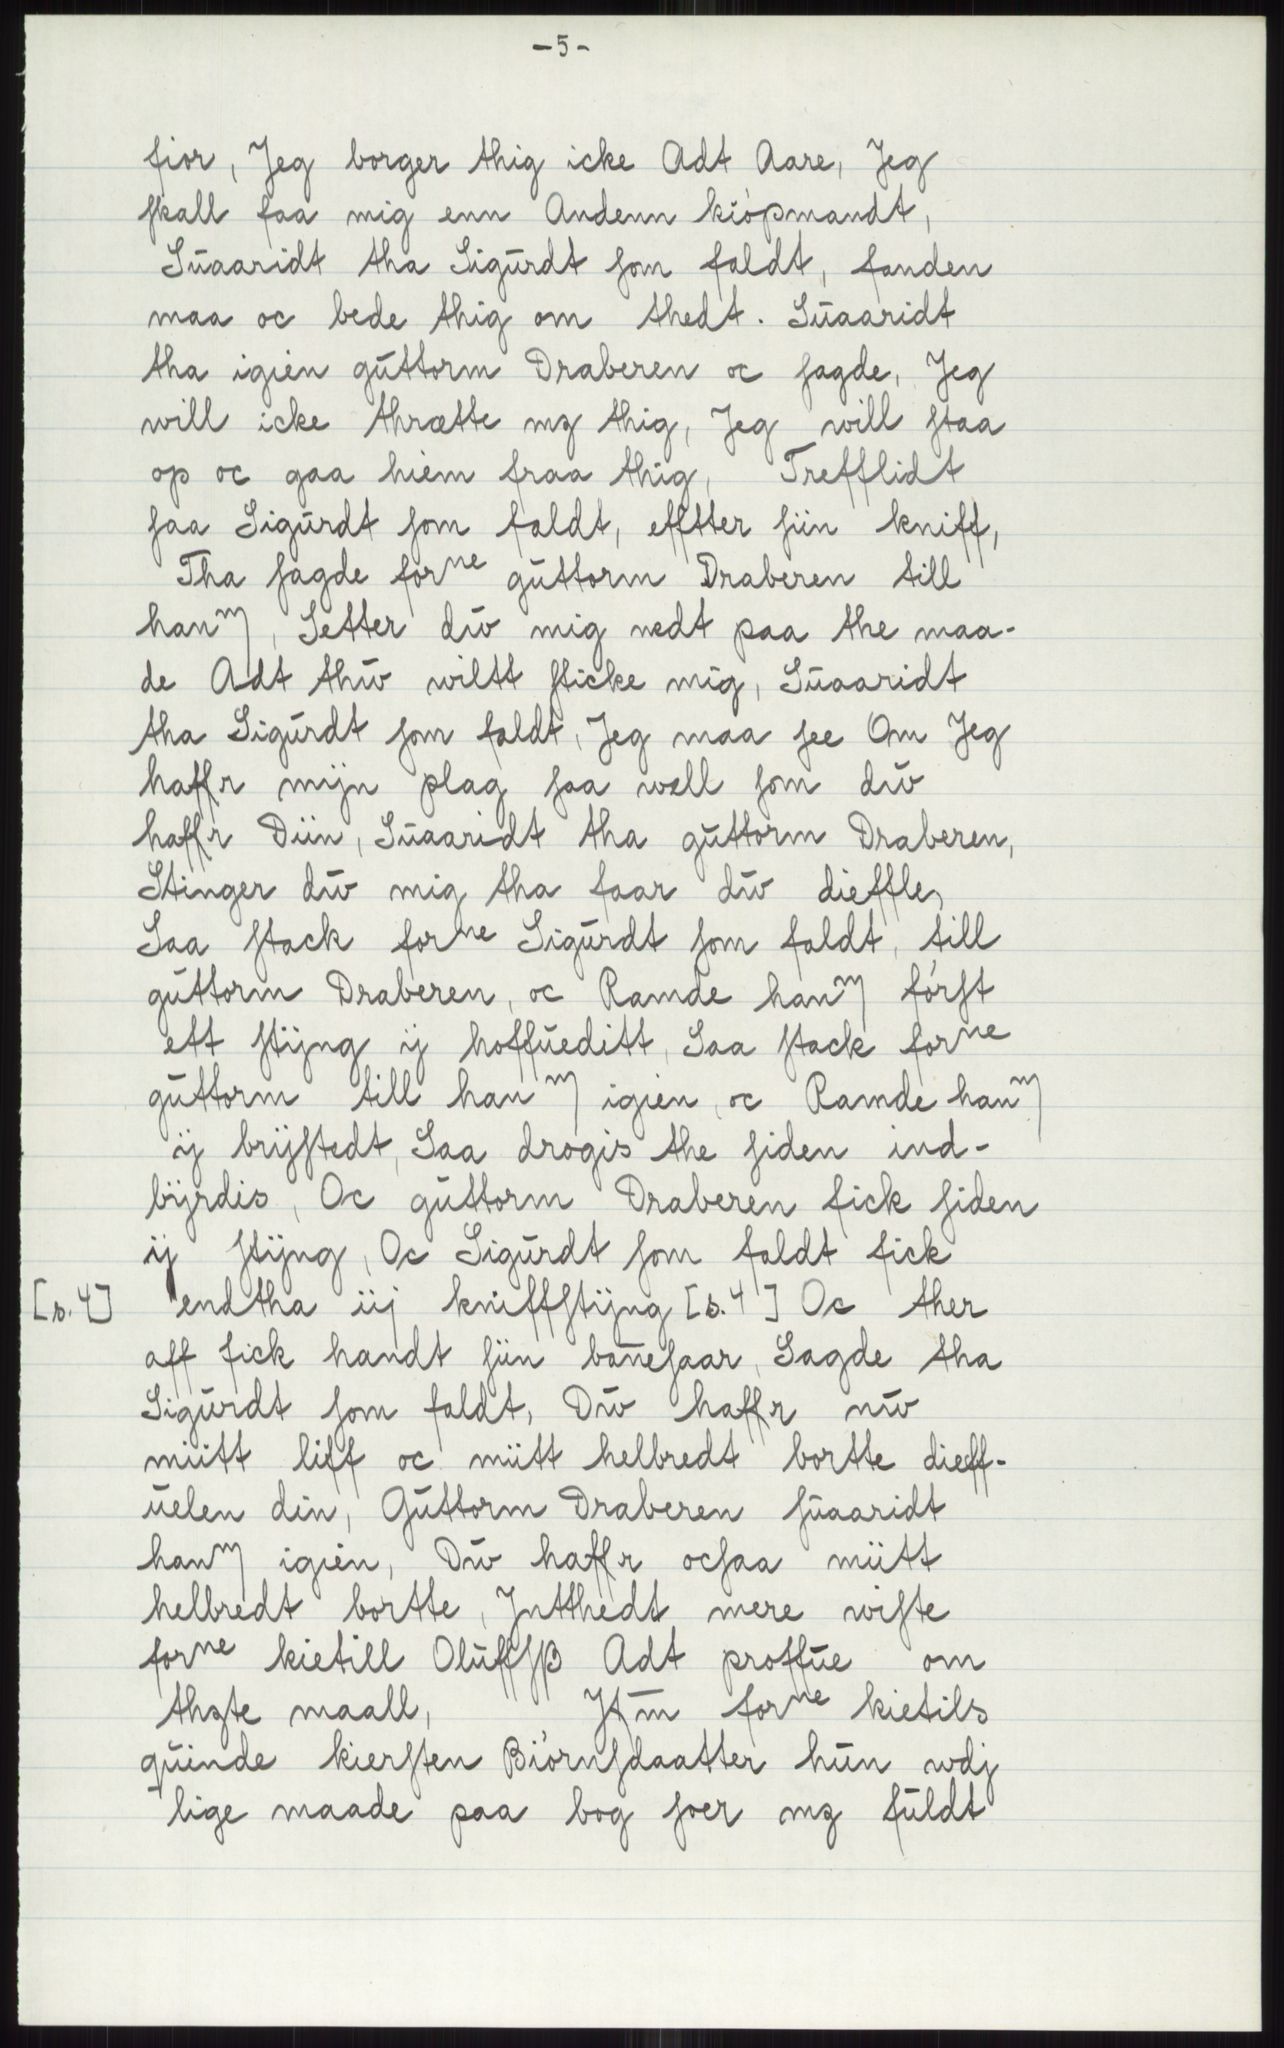 -5-
fior, Jeg borger thig icke Adt Aare, Jeg
skall faa mig enn Andenn kiópmandt,
Sŭaaridt tha Sigŭrdt som faldt, fanden
maa oc bede thig om thedt. Sŭaaridt
tha igien gŭttorm Draberen oc sagde, Jeg
will icke thrætte mꝫ thig, Jeg will staa
op oc gaa hiem fraa thig, Trefflidt
saa Sigŭrdt som faldt, efftter siin kniff,
Tha sagde forne gŭttorm Draberen till
hanm, Setter dŭ mig nedt paa the maa-
de Adt thŵ wiltt sticke mig, Sŭaaridt
tha Sigŭrdt som faldt, Jeg maa see Om Jeg
haffr mijn plag saa well som dŵ
haffr Diin, Sŭaaridt tha gŭttorm Draberen,
Stinger dŵ mig tha faar dŵ dieffle,
Saa stack forne Sigŭrdt som faldt, till
gŭttorm Draberen, oc Ramde hanm fórst
ett stijng ij hoffŭeditt, Saa stack forne
gŭttorm till hanm igien, oc Ramde hanm
ij brijstedt, Saa drogis the siden ind-
bijrdis, Oc gŭttorm Draberen fick siden
ij stijng, Oc Sigŭrdt som faldt fick
[s. 4] endtha iij kniffstijng [s. 4] Oc ther
aff fick handt siin bañesaar, Sagde tha
Sigŭrdt som faldt, Dŵ haffr nŵ
miitt liff oc miitt helbredt bortte dieff-
ŭelen din, Gŭttorm Draberen sŭaaridt
hanm igien, Dŵ haffr ocsaa miitt
helbredt bortte, Jntthedt mere wiste
forne kietill Olŭffsß Adt proffŭe om
thꝫte maall, Jtm̄ forne kietils
qŭinde kiersten Biórnsdaatter hŭn wdj
lige maade paa bog soer mꝫ fŭldt